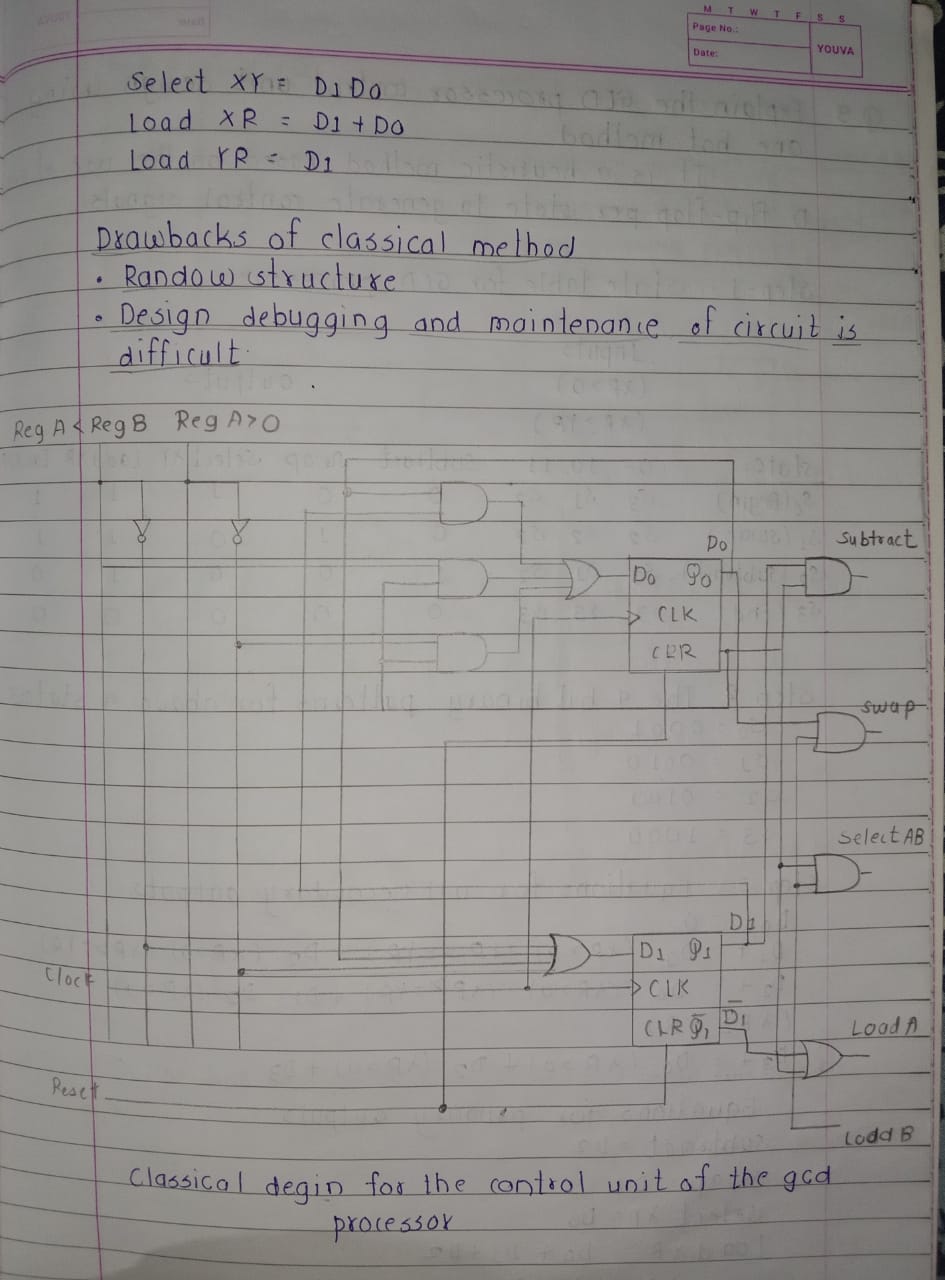 M T W T F S S
Page No.:
Date:
YOUVA
Select XY = D1 D0
Load XR = D1 + D0
Load YR = D1
Drawbacks of classical method
• Randow structure
• Design debugging and maintenance of circuit is
difficult.
Reg A < Reg B Reg A>0
Subtract
D0
D0 Q0
CLK
CLR
swap
Select AB
D1
D1 Q1
Clock
CLK
CLR Q̅1
D̅1
Load A
Reset
Load B
Classical degin for the control unit of the gcd
processor